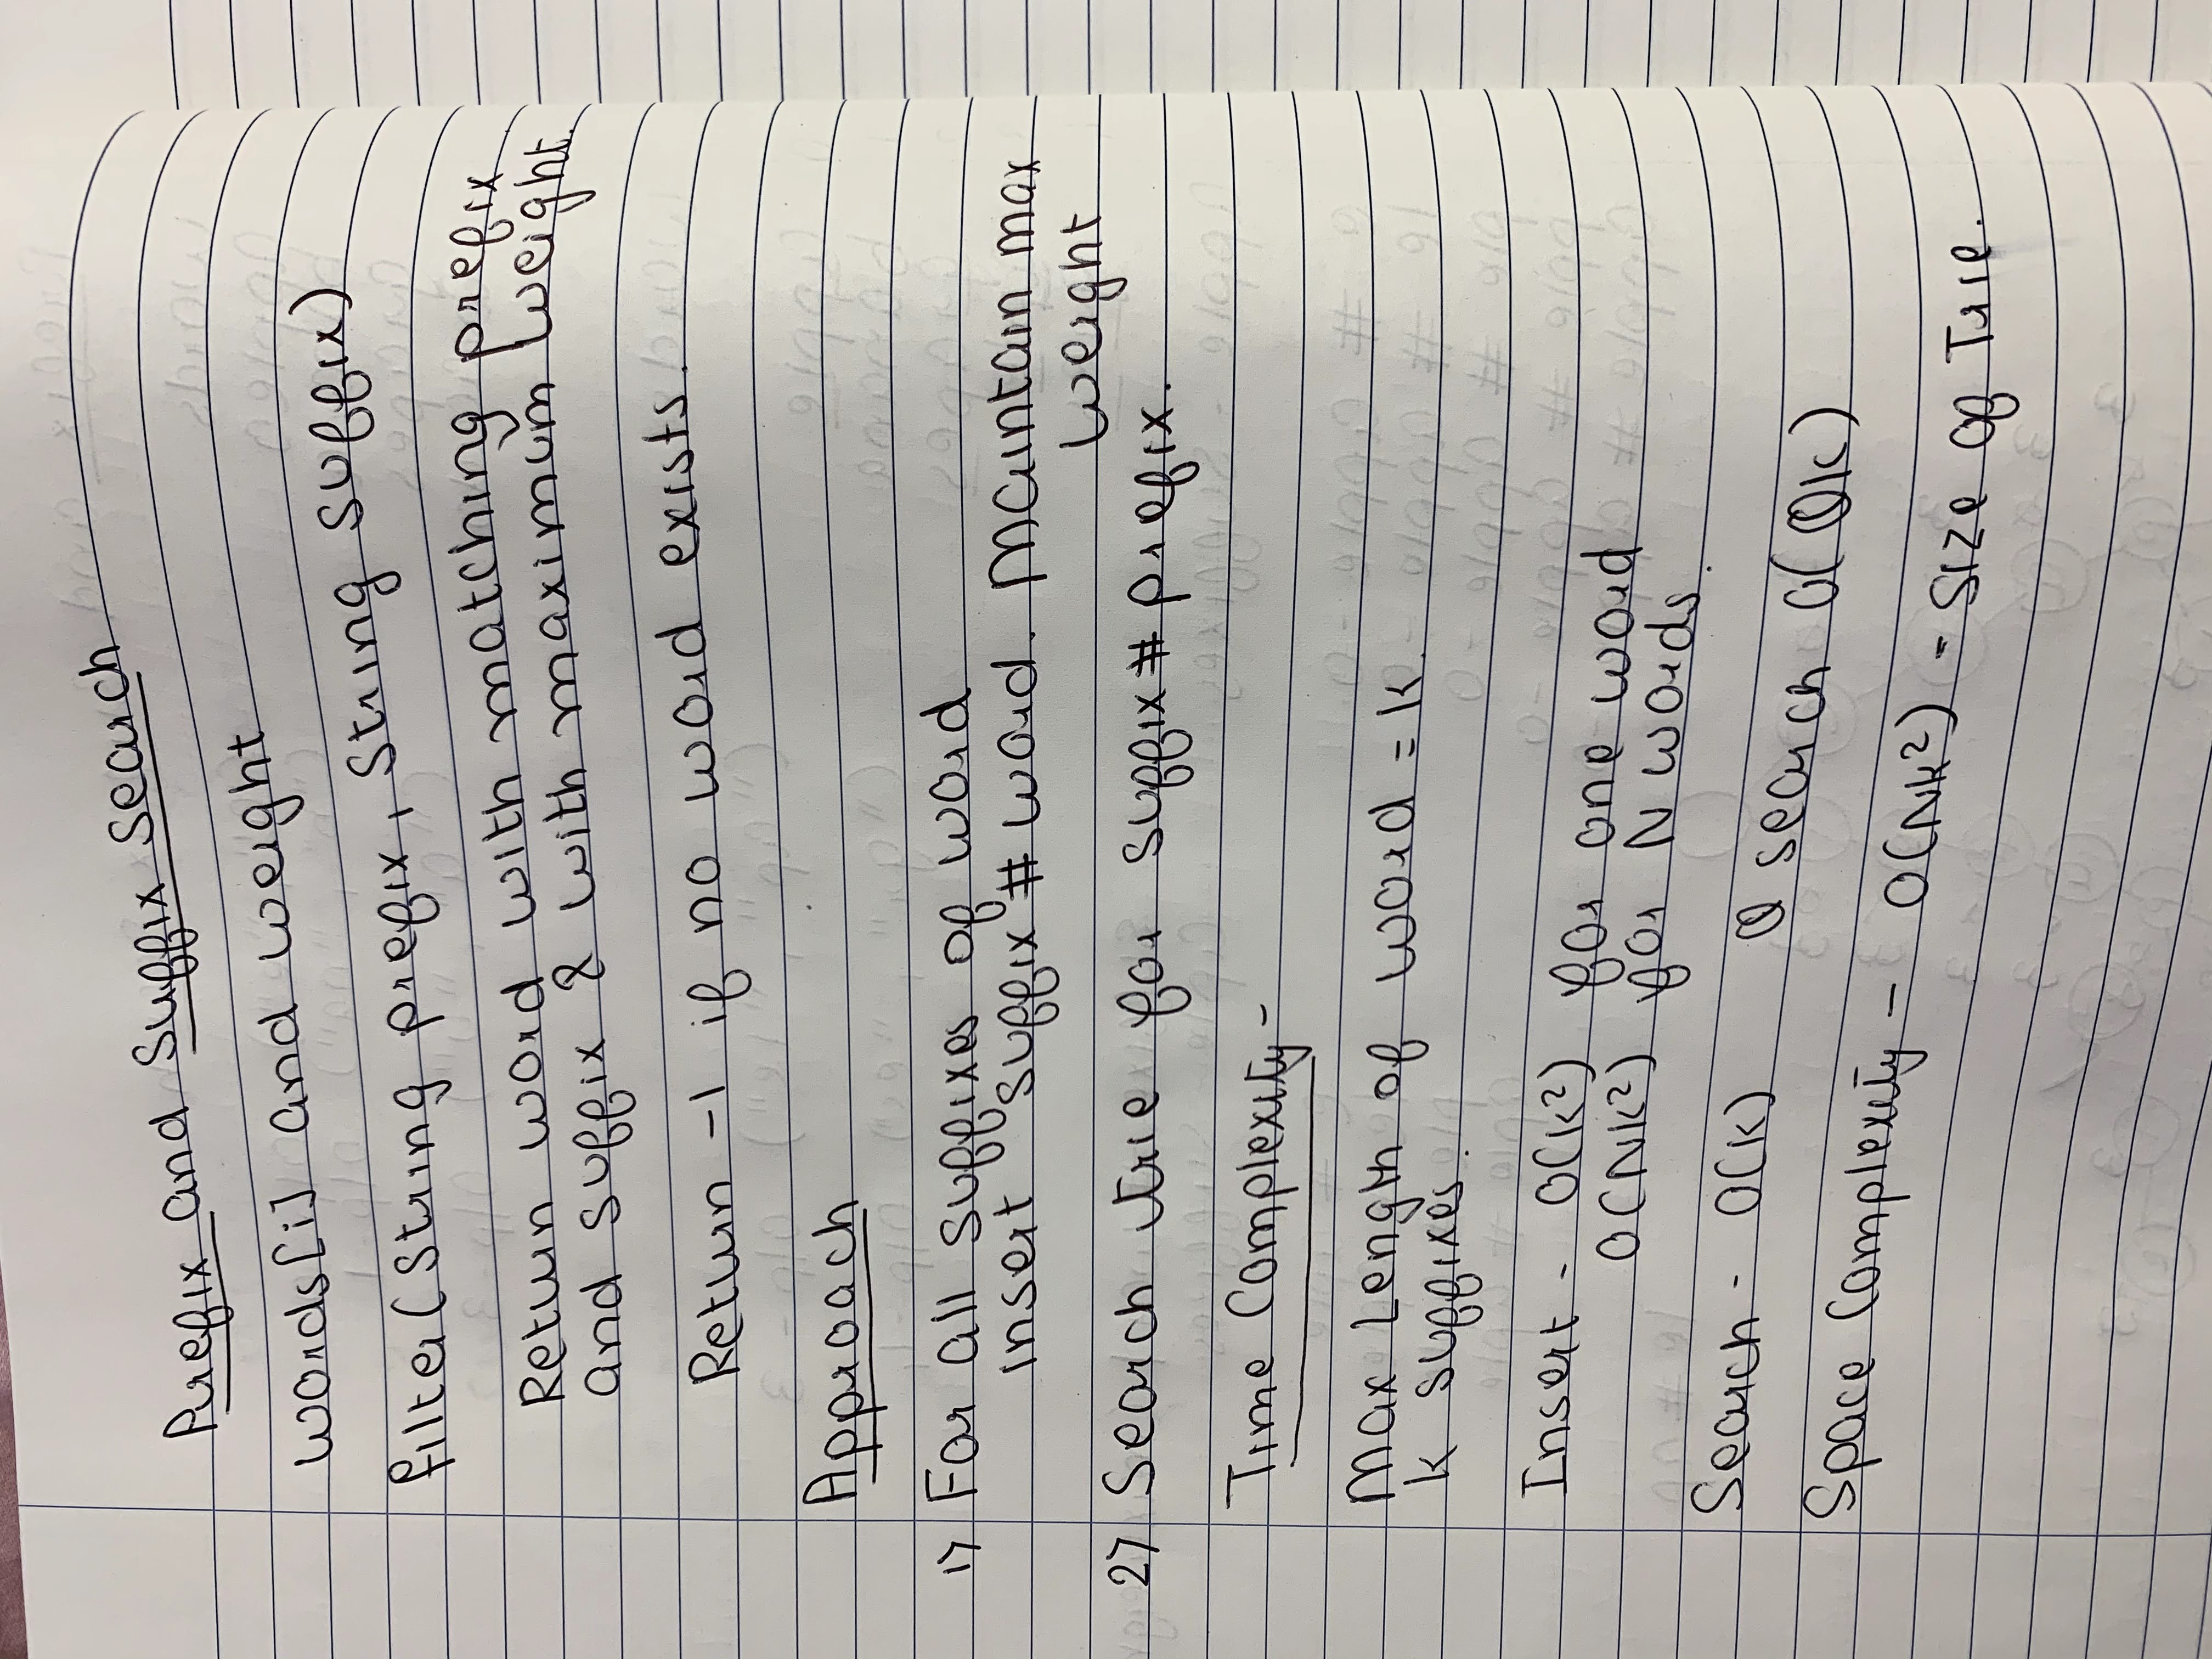 Prefix and Suffix Search
words[i] and weight
filter(String prefix, String suffix)
Return word with matching prefix
and suffix & with maximum weight.
Return -1 if no word exists.
Approach
1) For all suffixes of word
insert suffix # word. Maintain max
weight
2) Search trie for suffix # prefix.
Time Complexity -
Max Length of word = K.
K suffixes.
Insert - O(K²) for one word
O(NK²) for N words.
Search - O(K) Q search O(QK)
Space Complexity - O(NK²) - Size of Trie.